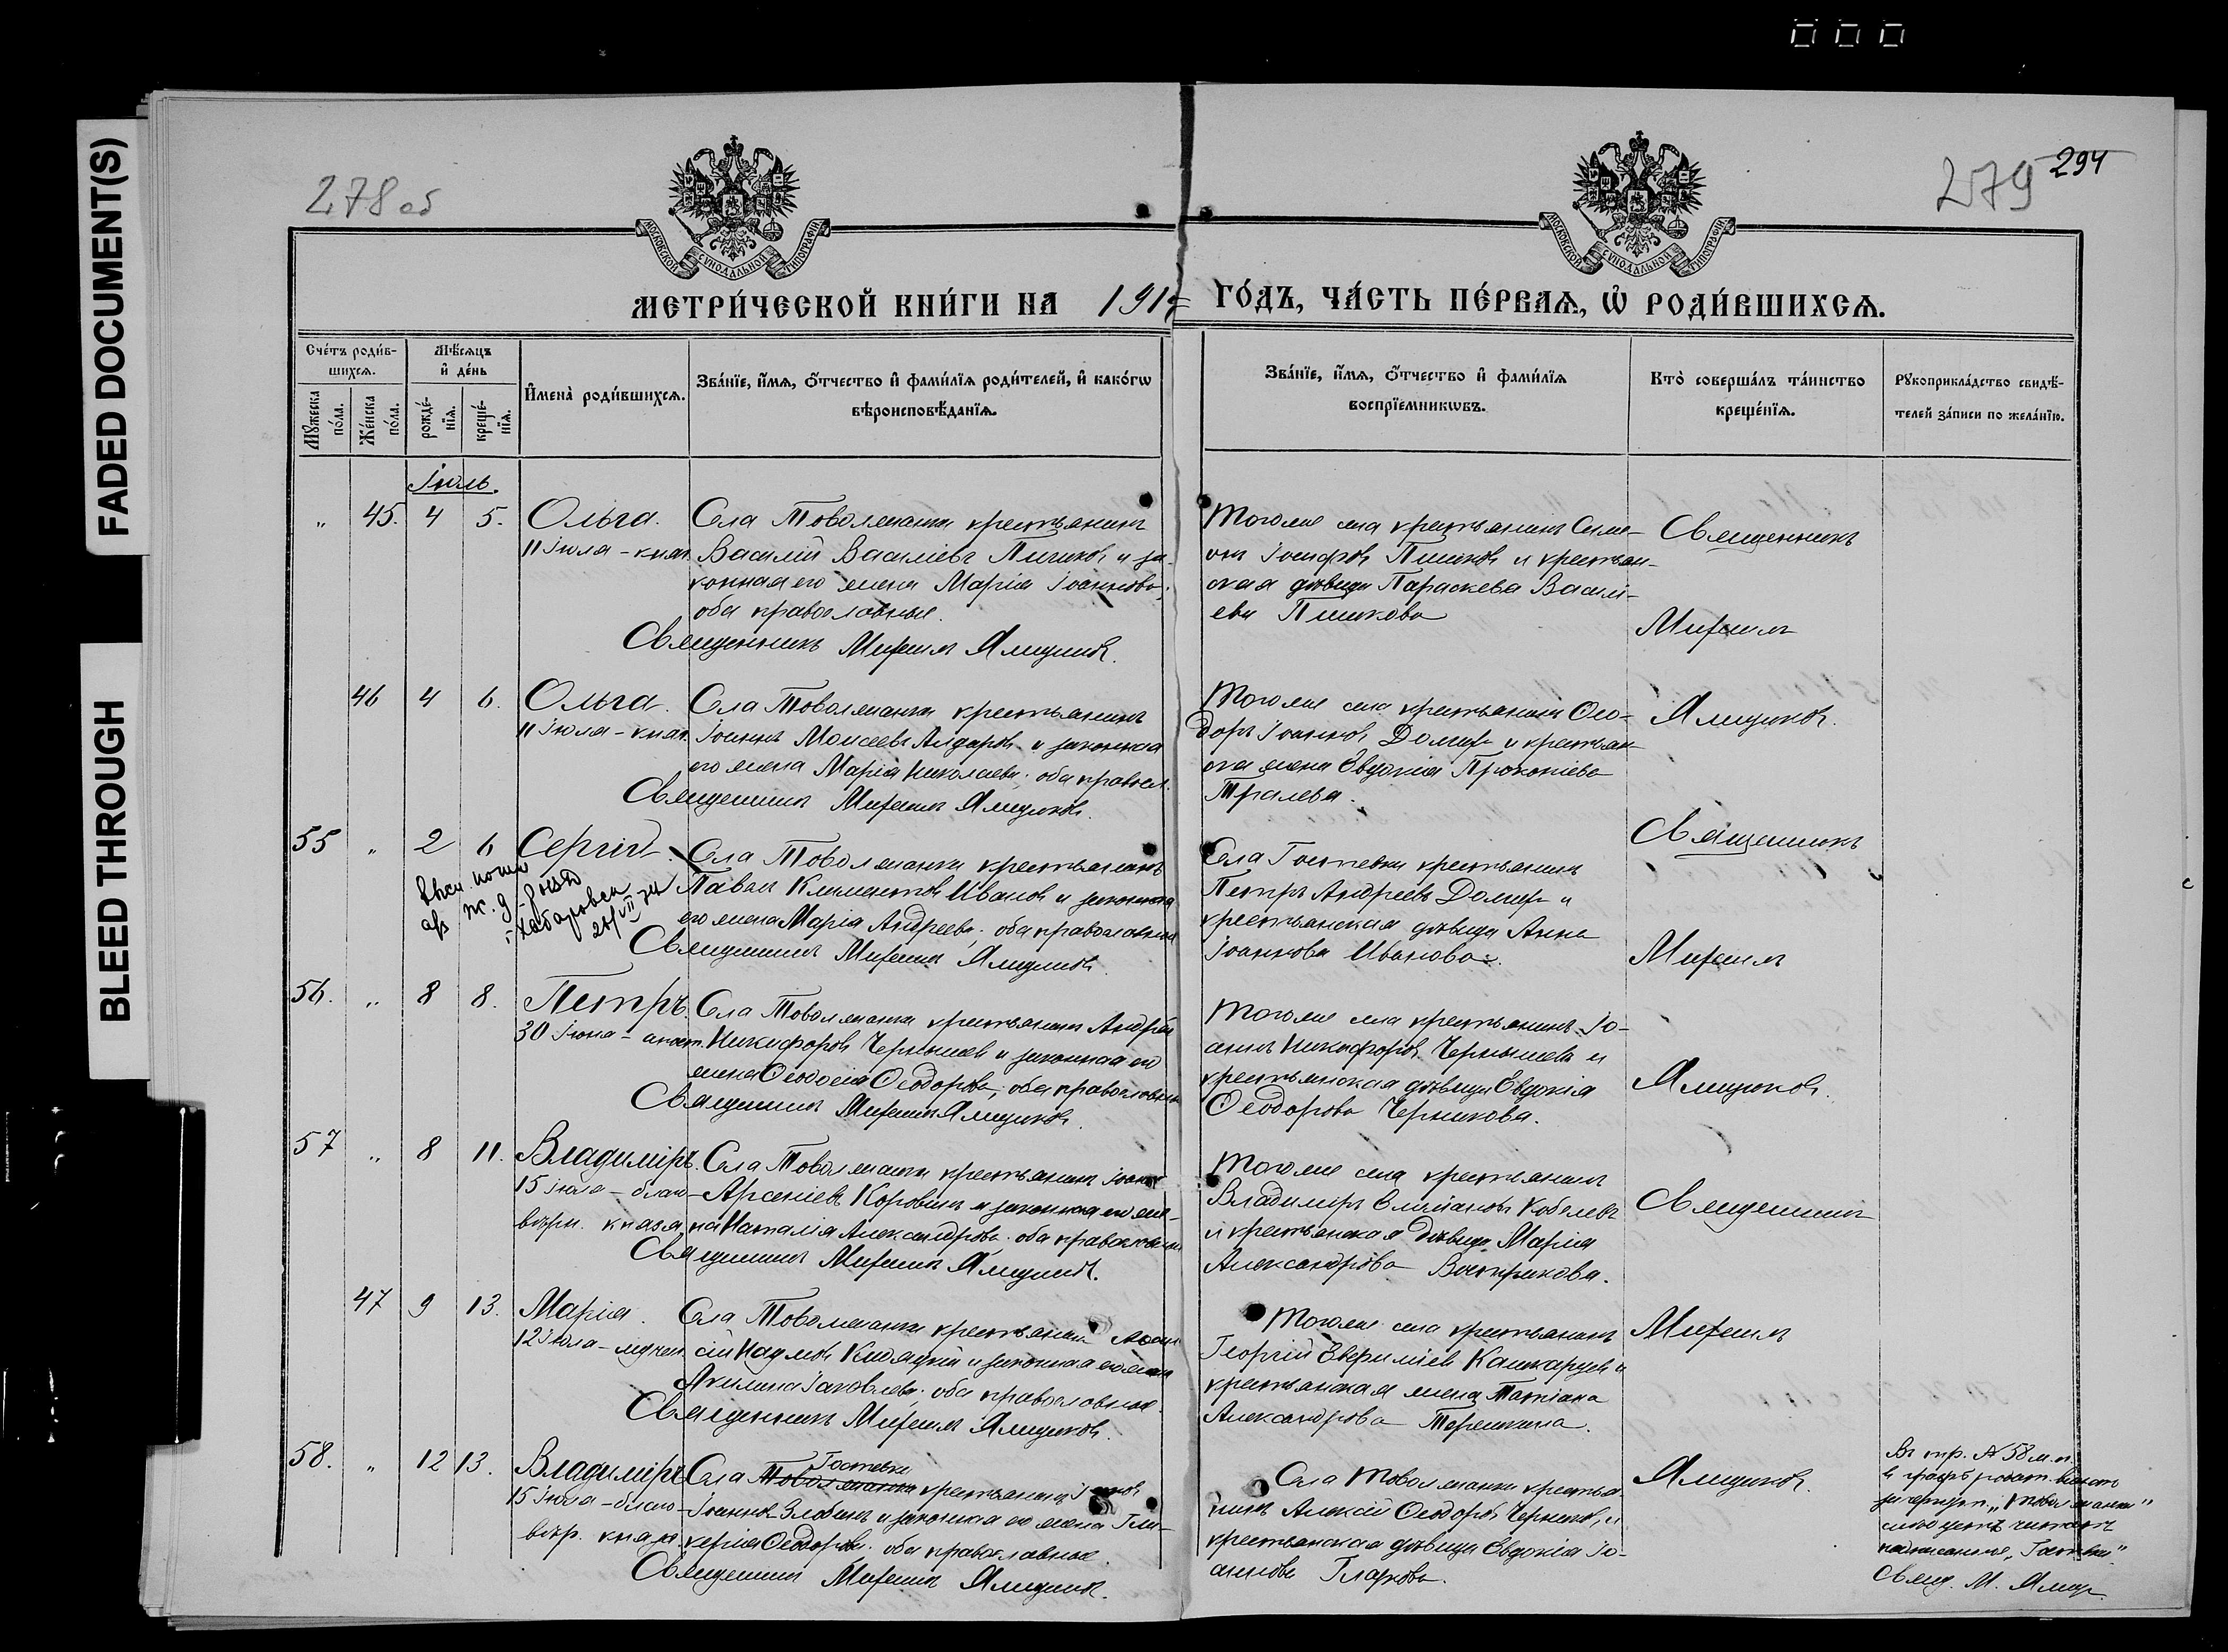 FADED DOCUMENT(S)
BLEED THROUGH
278 об
279 294
МОСКОВСКОЙ СУНОДАЛЬНОЙ ТИПОГРАФІИ
МОСКОВСКОЙ СУНОДАЛЬНОЙ ТИПОГРАФІИ
МЕТРИ́ЧЕСКОЙ КНИ́ГИ НА 191 ГО́ДЪ, ЧА́СТЬ ПЕ́РВАѦ, Ѡ РОДИ́ВШИХСѦ.
Сче́тъ роди́в-
шихсѧ.
Мꙋжеска по́ла.
Же́нска по́ла.
Мѣ́сѧцъ
и де́нь
рожде́-
нїѧ.
креще́-
нїѧ.
И҆мена̀ роди́вшихсѧ.
Зва́нїе, и҆́мѧ, ѻ҆́тчество и҆ фами́лїѧ роди́телей, и҆ како́гѡ
вѣроисповѣ́данїѧ.
Зва́нїе, и҆́мѧ, ѻ҆́тчество и҆ фами́лїѧ
воспрїе́мникѡвъ.
Кто̀ соверша́лъ та́инство
креще́нїѧ.
Рꙋкоприкла́дство свидѣ́-
телей за́писи по жела́нїю.
Іюль.
„ 45. 4 5. Ольга.
11 Іюля - княг.
Села Товолжанки крестьянинъ
Василій Василіевъ и за-
конная его жена Марія Іоаннова;
оба православные.
Священникъ Ямщиковъ.
Того же села крестьянинъ Симе-
онъ Іосифовъ Пишковъ и крестьян-
ская дѣвица Параскева Васил-
ева Пишкова
Священникъ
Ямщиковъ.
46 4 6. Ольга.
11 Іюля - княг.
Села Товолжанки крестьянинъ
Іоаннъ Моисеевъ и законная
его жена Марія Николаева; оба правосл.
Священникъ Ямщиковъ.
Того же села крестьянинъ Ѳео-
доръ Іоанновъ и крестьян-
ская жена Евдокія Прокопіева
55 „ 2 6 Сергій
Хабаровск
Села Товолжанки крестьянинъ
Павелъ Климентовъ Ивановъ и законная
его жена Марія Андреева; оба православные
Священникъ Ямщиковъ.
Села Гостевки крестьянинъ
Петръ Андреевъ и
крестьянская дѣвица Анна
Іоаннова Иванова.
Священникъ
Ямщиковъ.
56. „ 8 8. Петръ.
30 Іюня - апост.
Села Товолжанки крестьянинъ Андрей
Никифоровъ Чернышевъ и законная его
жена Ѳеодосія Ѳеодорова; оба православные
Священникъ Ямщиковъ.
Того же села крестьянинъ Іо-
аннъ Никифоровъ Чернышевъ и
крестьянская дѣвица Евдокія
Ѳеодорова Черникова.
57 „ 8 11. Владиміръ.
15 Іюля - благо-
вѣрн. князя
Села Товолжанки крестьянинъ Іоаннъ
Арсеніевъ Коровинъ и законная его же-
на Наталія Александрова; оба православные
Священникъ Ямщиковъ.
Того же села крестьянинъ
Владиміръ Емиліановъ Кобелевъ
и крестьянская дѣвица Марія
Александрова Вострикова.
Священникъ
47 9 13. Марія.
12 Іюля - мучен.
Села Товолжанки крестьянинъ
сій Наумовъ и законная его жена
Акилина Іаковлева; оба православные.
Священникъ Ямщиковъ.
Того же села крестьянинъ
Георгій и
крестьянская жена Татіана
Александрова Терешкина.
Ямщиковъ.
58. „ 12 13. Владиміръ
15 Іюля - благо-
вѣр. князя.
Гостевки
Села Товолжанки крестьянинъ
Іоанновъ Злобинъ и законная его жена Гли-
керія Ѳеодорова; оба православные.
Священникъ Ямщиковъ.
Села Товолжанки крестья-
нинъ Алексій Ѳеодоровъ Черниковъ и
крестьянская дѣвица Евдокія Іо-
аннова Глазкова.
Въ гр. № 58 м. п.
въ графѣ
зачеркн. „Товолжанки"
слѣдуетъ читать
написанное „Гостевки"
Свящ. М. Ямщ.